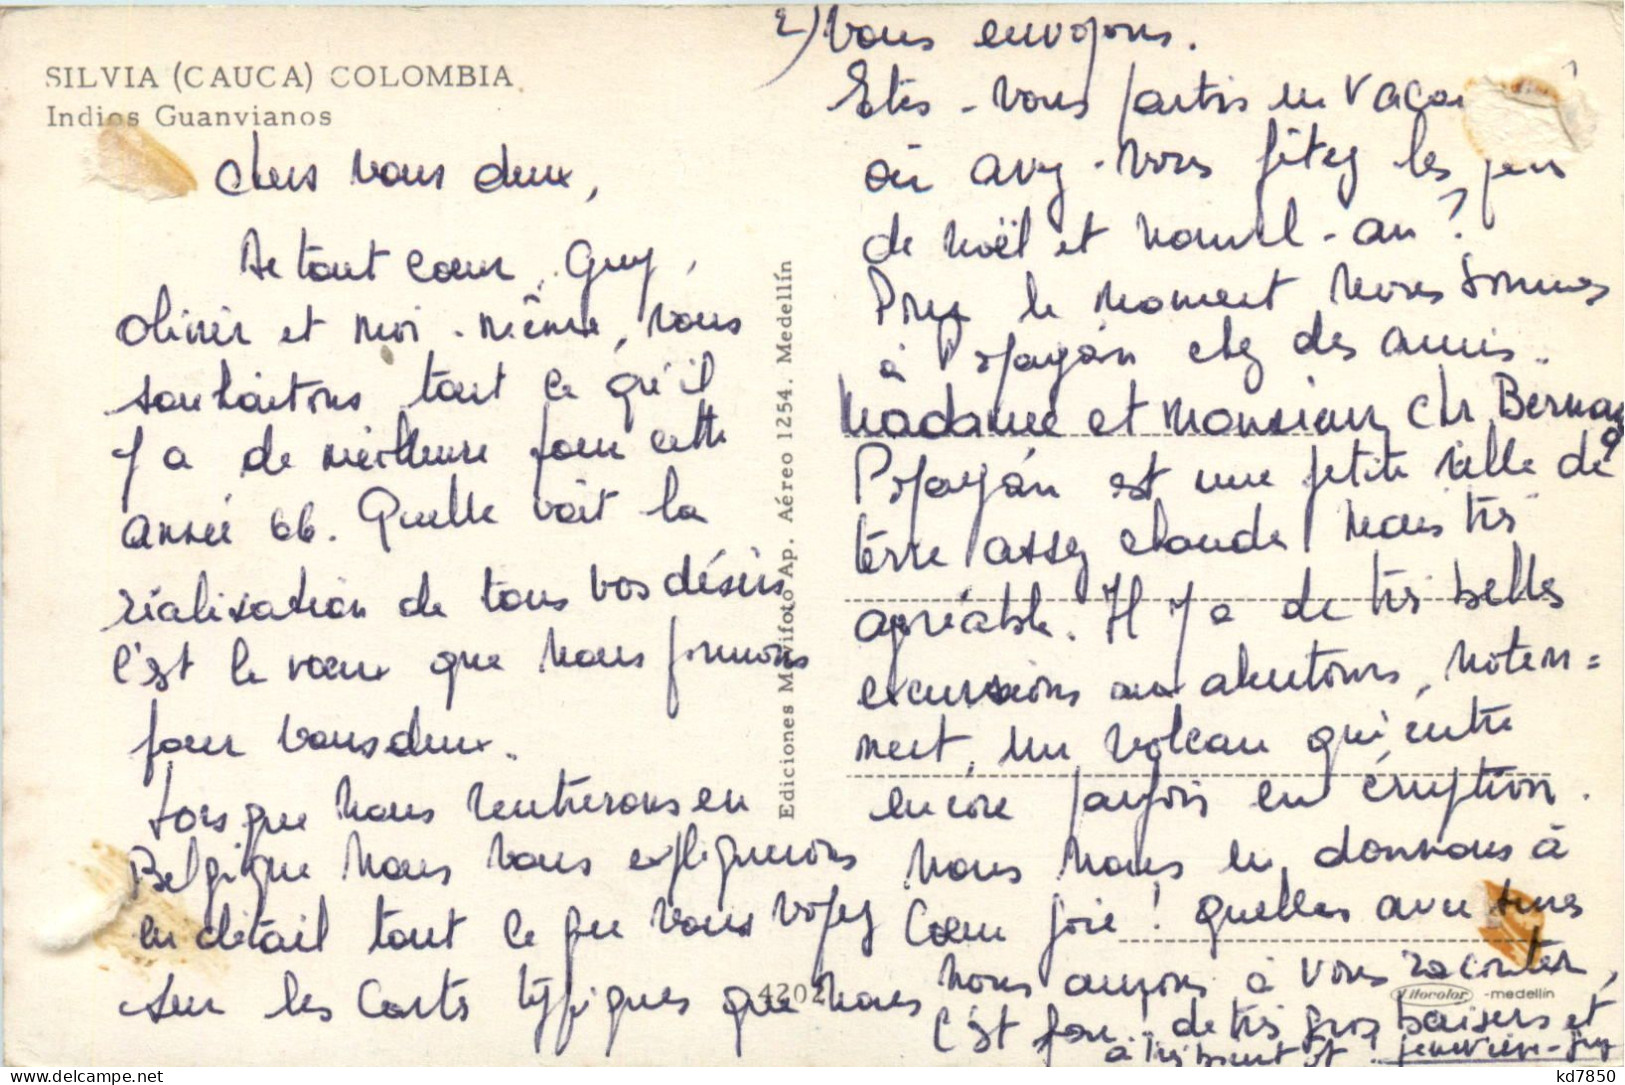 SILVIA (CAUCA) COLOMBIA
Indios Guanvianos
Chers vous deux,
De tout coeur, Guy,
Olivier et moi-même, vous
souhaitons tout ce qu'il
y a de meilleure pour cette
année 66. Quelle voit la
réalisation de tous vos désirs
c'est le voeux que nous formons
pour vous deux.
Lorsque nous rentrerons en
Belgique nous vous expliquerons
en détail tout ce que vous voyez
sur les cartes typiques que nous
Ediciones Movifoto Ap. Aéreo 1254. Medellín
4202
2) Vous envoyons.
Etes-vous partis en
où avez-vous fêtez les
de Noël et nouvel-an?
Pour le moment nous sommes
à Popayán chez des amis.
Madame et Monsieur Ch
Popayán est une petite ville de
terre assez chaude mais très
agréable. Il y a de très belles
excursions aux alentours, notem=
ment, un volcan qui entre
encore parfois en éruption.
Nous nous en donnons à
coeur joie! Quelles aventures
nous aurons à vous raconter,
c'est fou! de très gros baisers et
à très bientôt. Geneviève-Guy
Litocolor -medellín
kd7850